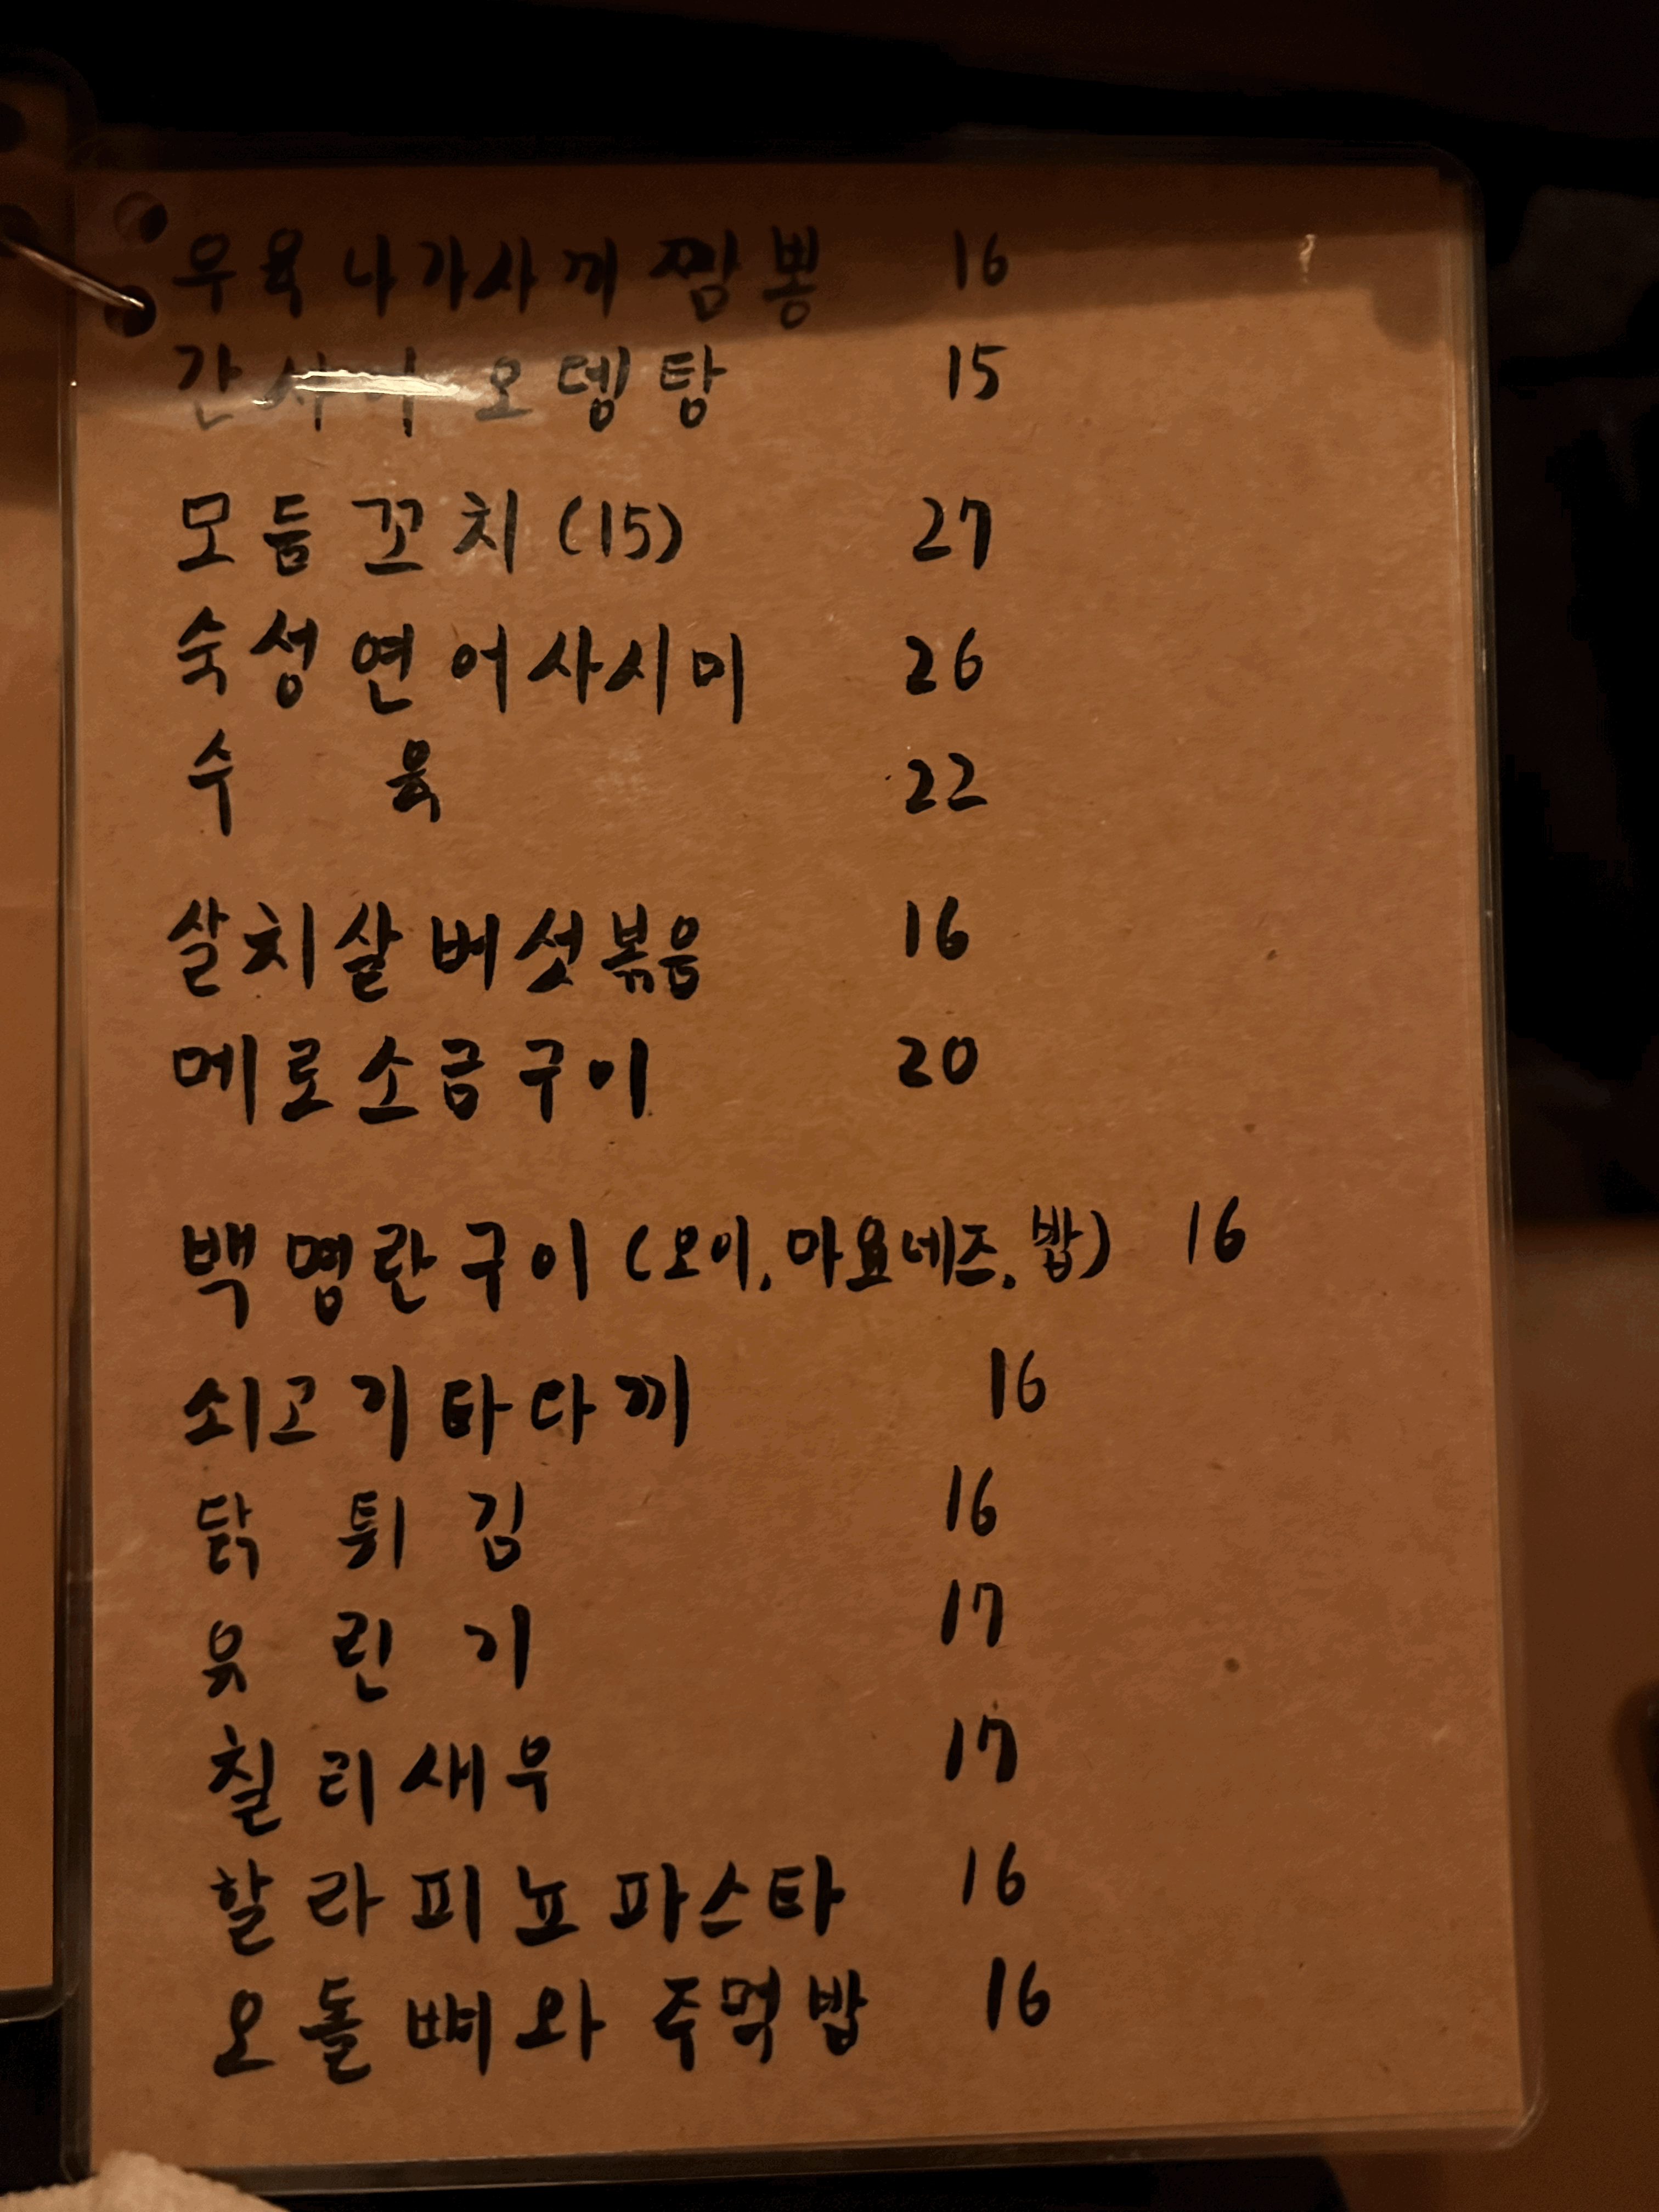 우육나가사끼짬뽕 16
간사이오뎅탕 15
모듬꼬치(15) 27
숙성연어사시미 26
수육 22
살치살버섯볶음 16
메로소금구이 20
백명란구이(오이.마요네즈.밥) 16
쇠고기타다끼 16
닭튀김 16
유린기 17
칠리새우 17
할라피뇨파스타 16
오돌뼈와 주먹밥 16